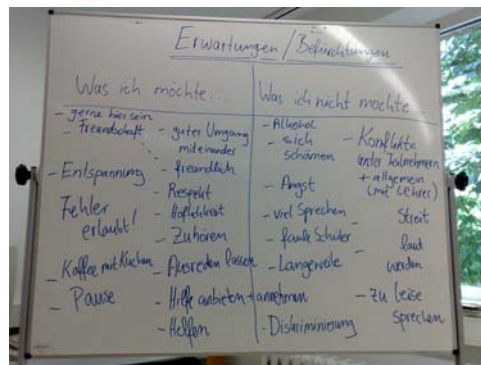 Erwartungen / Befürchtungen
Was ich möchte...
- gerne hier sein
- Freundschaft
- Entspannung
Fehler
erlaubt!
- Kaffee mit Kuchen
- Pause
- guter Umgang
miteinander
- freundlich
- Respekt
- Höflichkeit
- Zuhören
- Ausreden lassen
- Hilfe anbieten + annehmen
- Helfen
Was ich nicht möchte...
- Alkohol
- sich
schämen
- Angst
- viel Sprechen
- faule Schüler
- Langeweile
- Diskriminierung
- Konflikte
unter Teilnehmern
+ allgemein
(mit Lehrer)
- Streit
- laut
werden
- zu leise
sprechen